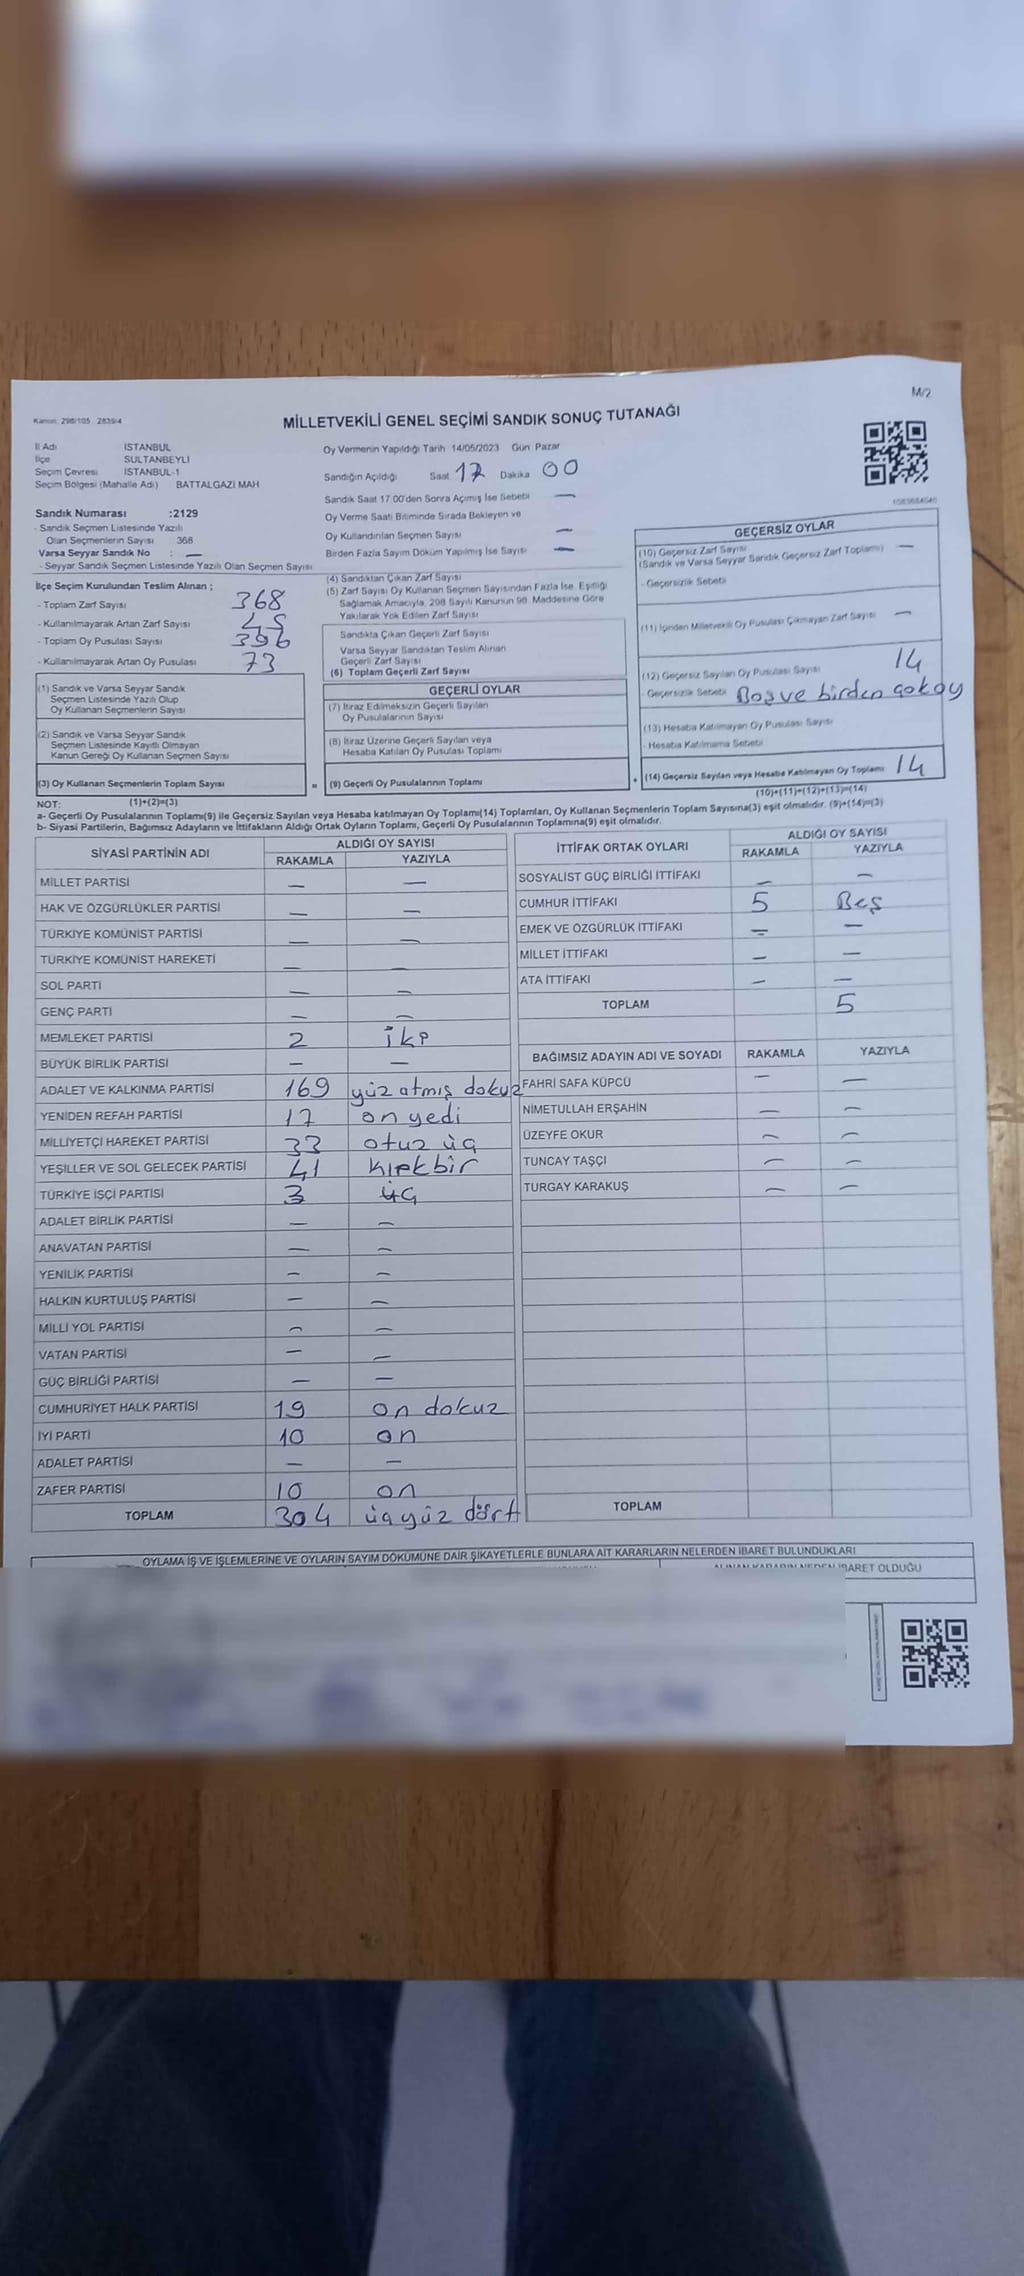 M/2
Kanun: 298/105 2839/4
MİLLETVEKİLİ GENEL SEÇİMİ SANDIK SONUÇ TUTANAĞI
İl Adı İSTANBUL
İlçe SULTANBEYLİ
Seçim Çevresi İSTANBUL-1
Seçim Bölgesi (Mahalle Adı) BATTALGAZİ MAH
Oy Vermenin Yapıldığı Tarih 14/05/2023 Gün Pazar
Sandığın Açıldığı Saat 17 Dakika 00
Sandık Saat 17.00'den Sonra Açımış İse Sebebi —
Oy Verme Saati Bitiminde Sırada Bekleyen ve
Oy Kullandırılan Seçmen Sayısı —
Birden Fazla Sayım Döküm Yapılmış İse Sayısı —
Sandık Numarası :2129
- Sandık Seçmen Listesinde Yazılı
Olan Seçmenlerin Sayısı : 368
Varsa Seyyar Sandık No : —
- Seyyar Sandık Seçmen Listesinde Yazılı Olan Seçmen Sayısı
İlçe Seçim Kurulundan Teslim Alınan ;
- Toplam Zarf Sayısı 368
- Kullanılmayarak Artan Zarf Sayısı 45
- Toplam Oy Pusulası Sayısı 396
- Kullanılmayarak Artan Oy Pusulası 73
(1) Sandık ve Varsa Seyyar Sandık
Seçmen Listesinde Yazılı Olup
Oy Kullanan Seçmenlerin Sayısı
(2) Sandık ve Varsa Seyyar Sandık
Seçmen Listesinde Kayıtlı Olmayan
Kanun Gereği Oy Kullanan Seçmen Sayısı
(3) Oy Kullanan Seçmenlerin Toplam Sayısı =
(1)+(2)=(3)
(4) Sandıktan Çıkan Zarf Sayısı
(5) Zarf Sayısı Oy Kullanan Seçmen Sayısından Fazla İse, Eşitliği
Sağlamak Amacıyla, 298 Sayılı Kanunun 98. Maddesine Göre
Yakılarak Yok Edilen Zarf Sayısı
Sandıkta Çıkan Geçerli Zarf Sayısı
Varsa Seyyar Sandıktan Teslim Alınan
Geçerli Zarf Sayısı
(6) Toplam Geçerli Zarf Sayısı
GEÇERLİ OYLAR
(7) İtiraz Edilmeksizin Geçerli Sayılan
Oy Pusulalarının Sayısı
(8) İtiraz Üzerine Geçerli Sayılan veya
Hesaba Katılan Oy Pusulası Toplamı
(9) Geçerli Oy Pusulalarının Toplamı +
GEÇERSİZ OYLAR
(10) Geçersiz Zarf Sayısı —
(Sandık ve Varsa Seyyar Sandık Geçersiz Zarf Toplamı)
- Geçersizlik Sebebi
(11) İçinden Milletvekili Oy Pusulası Çıkmayan Zarf Sayısı —
(12) Geçersiz Sayılan Oy Pusulası Sayısı 14
- Geçersizlik Sebebi Boş ve birden çok oy
(13) Hesaba Katılmayan Oy Pusulası Sayısı
- Hesaba Katılmama Sebebi
(14) Geçersiz Sayılan veya Hesaba Katılmayan Oy Toplamı 14
(10)+(11)+(12)+(13)=(14)
NOT:
a- Geçerli Oy Pusulalarının Toplamı(9) ile Geçersiz Sayılan veya Hesaba katılmayan Oy Toplamı(14) Toplamları, Oy Kullanan Seçmenlerin Toplam Sayısına(3) eşit olmalıdır. (9)+(14)=(3)
b- Siyasi Partilerin, Bağımsız Adayların ve İttifakların Aldığı Ortak Oyların Toplamı, Geçerli Oy Pusulalarının Toplamına(9) eşit olmalıdır.
SİYASİ PARTİNİN ADI ALDIĞI OY SAYISI
RAKAMLA YAZIYLA
MİLLET PARTİSİ — —
HAK VE ÖZGÜRLÜKLER PARTİSİ — —
TÜRKİYE KOMÜNİST PARTİSİ — —
TÜRKİYE KOMÜNİST HAREKETİ — —
SOL PARTİ — —
GENÇ PARTİ — —
MEMLEKET PARTİSİ 2 iki
BÜYÜK BİRLİK PARTİSİ — —
ADALET VE KALKINMA PARTİSİ 169 yüz atmış dokuz
YENİDEN REFAH PARTİSİ 17 on yedi
MİLLİYETÇİ HAREKET PARTİSİ 33 otuz üç
YEŞİLLER VE SOL GELECEK PARTİSİ 41 kırk bir
TÜRKİYE İŞÇİ PARTİSİ 3 üç
ADALET BİRLİK PARTİSİ — —
ANAVATAN PARTİSİ — —
YENİLİK PARTİSİ — —
HALKIN KURTULUŞ PARTİSİ — —
MİLLİ YOL PARTİSİ — —
VATAN PARTİSİ — —
GÜÇ BİRLİĞİ PARTİSİ — —
CUMHURİYET HALK PARTİSİ 19 on dokuz
İYİ PARTİ 10 on
ADALET PARTİSİ — —
ZAFER PARTİSİ 10 on
TOPLAM 304 üçyüz dört
İTTİFAK ORTAK OYLARI ALDIĞI OY SAYISI
RAKAMLA YAZIYLA
SOSYALİST GÜÇ BİRLİĞİ İTTİFAKI — —
CUMHUR İTTİFAKI 5 Beş
EMEK VE ÖZGÜRLÜK İTTİFAKI — —
MİLLET İTTİFAKI — —
ATA İTTİFAKI — —
TOPLAM 5
BAĞIMSIZ ADAYIN ADI VE SOYADI RAKAMLA YAZIYLA
FAHRİ SAFA KÜPCÜ — —
NİMETULLAH ERŞAHİN — —
ÜZEYFE OKUR — —
TUNCAY TAŞÇI — —
TURGAY KARAKUŞ — —
TOPLAM
OYLAMA İŞ VE İŞLEMLERİNE VE OYLARIN SAYIM DÖKÜMÜNE DAİR ŞİKAYETLERLE BUNLARA AİT KARARLARIN NELERDEN İBARET BULUNDUKLARI
ALINAN KARARIN NEDEN İBARET OLDUĞU